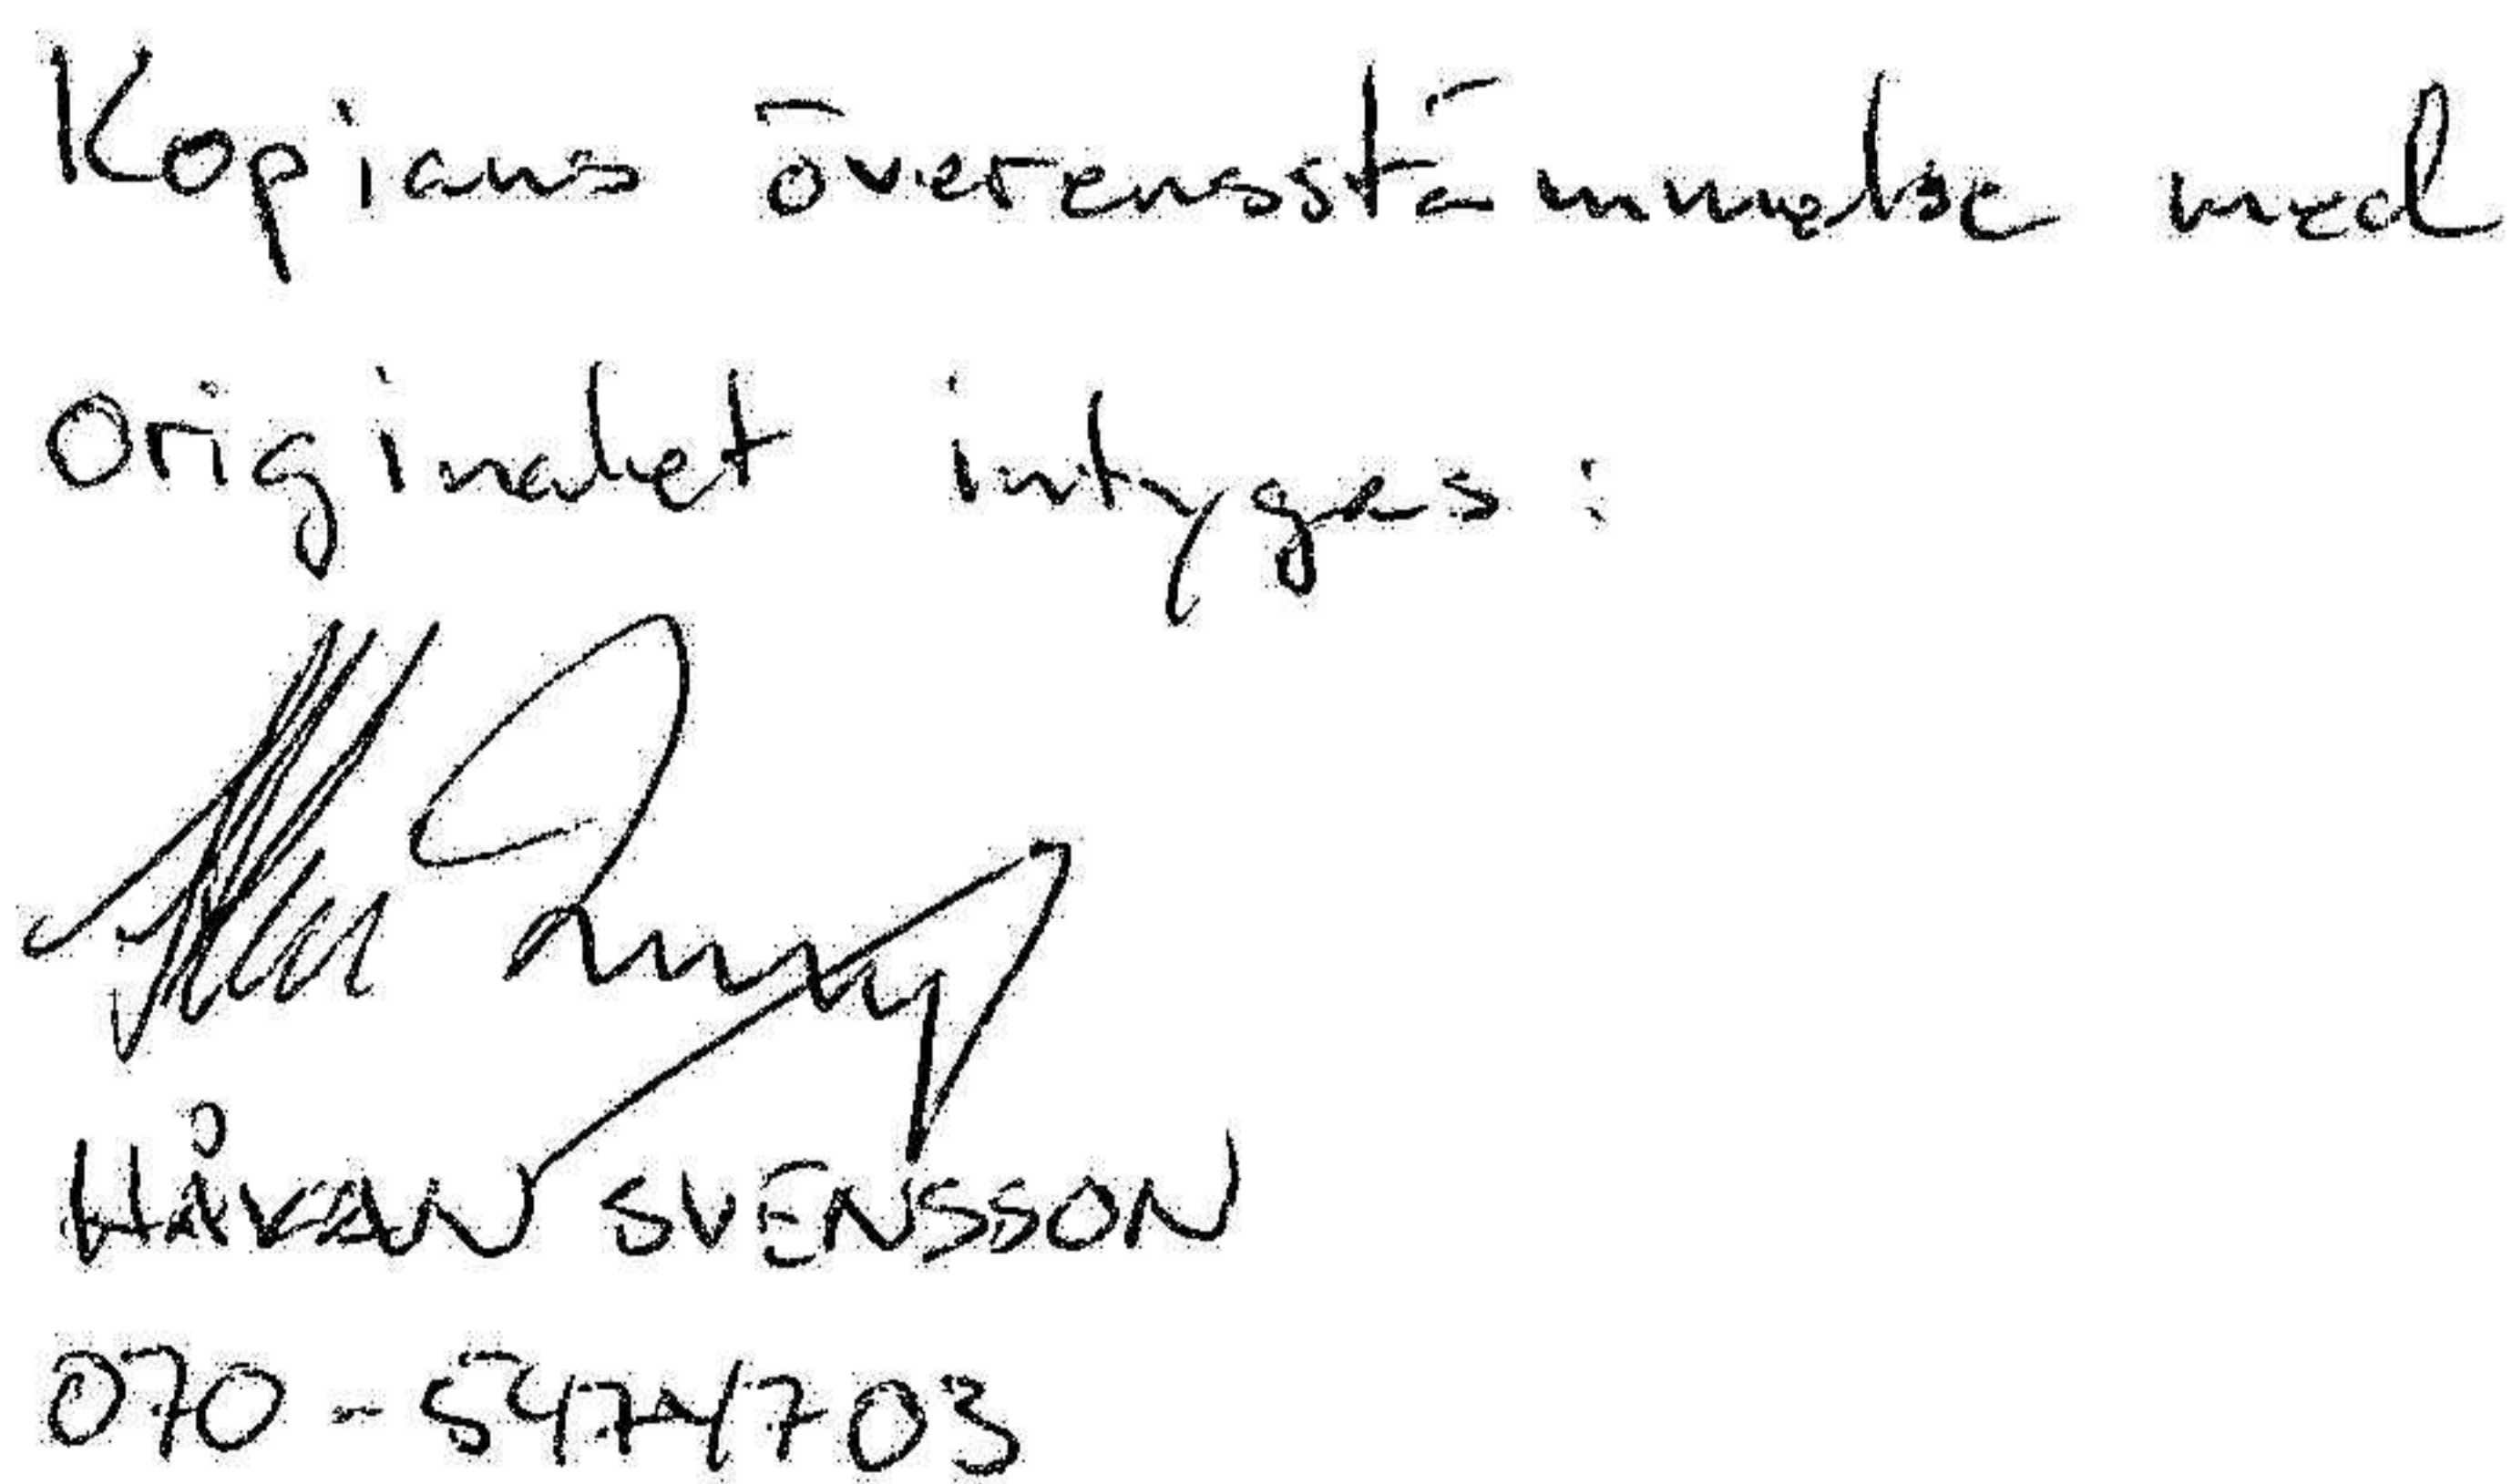 Kopians överensstämmelse med
originalet intygas:
HÅKAN SVENSSON
070-5474703